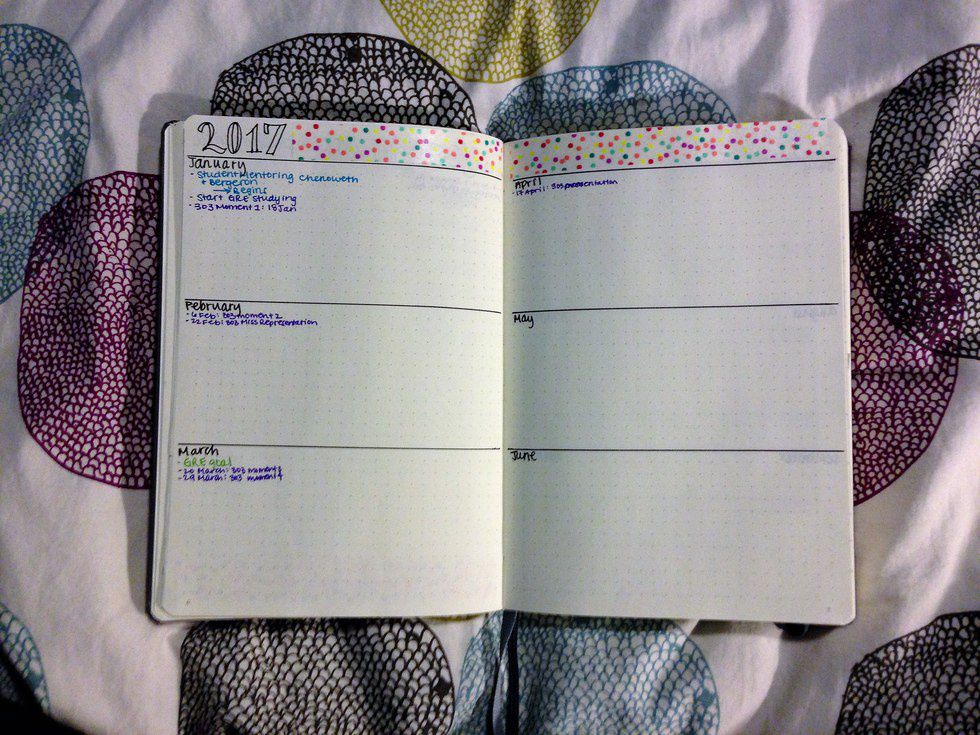 2017
January
- Student Mentoring Chenoweth
+ Bergeron
→ Begins
- Start GRE Studying
- 303 Moment 1: 18 Jan
February
- 6 Feb: 303 moment 2
- 22 Feb: 303 Miss Representation
March
- GRE goal
- 20 March: 303 moment 3
- 29 March: 303 moment 4
April
- 17 April: 303 presentation
May
June